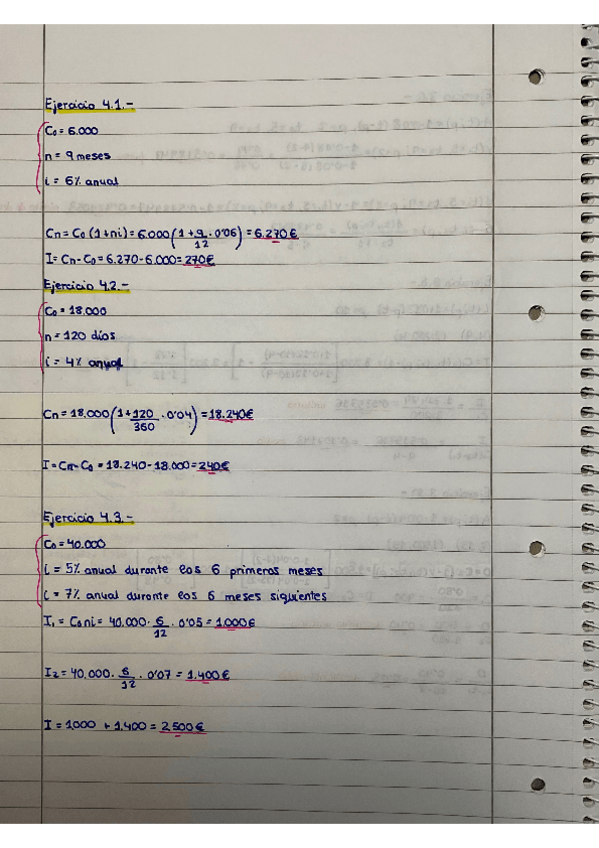 Ejercicio 4.1.-
C₀ = 6.000
n = 9 meses
i = 6% anual
Cn = C₀ (1+ni) = 6.000 (1 + 9/12 · 0'06) = 6.270€
I = Cn - C₀ = 6.270 - 6.000 = 270€
Ejercicio 4.2.-
C₀ = 18.000
n = 120 días
i = 4% anual
Cn = 18.000 (1 + 120/360 · 0'04) = 18.240€
I = Cn - C₀ = 18.240 - 18.000 = 240€
Ejercicio 4.3.-
C₀ = 40.000
i = 5% anual durante los 6 primeros meses
i = 7% anual durante los 6 meses siguientes
I₁ = C₀ni = 40.000 · 6/12 · 0'05 = 1.000€
I₂ = 40.000 · 6/12 · 0'07 = 1.400€
I = 1.000 + 1.400 = 2.500€